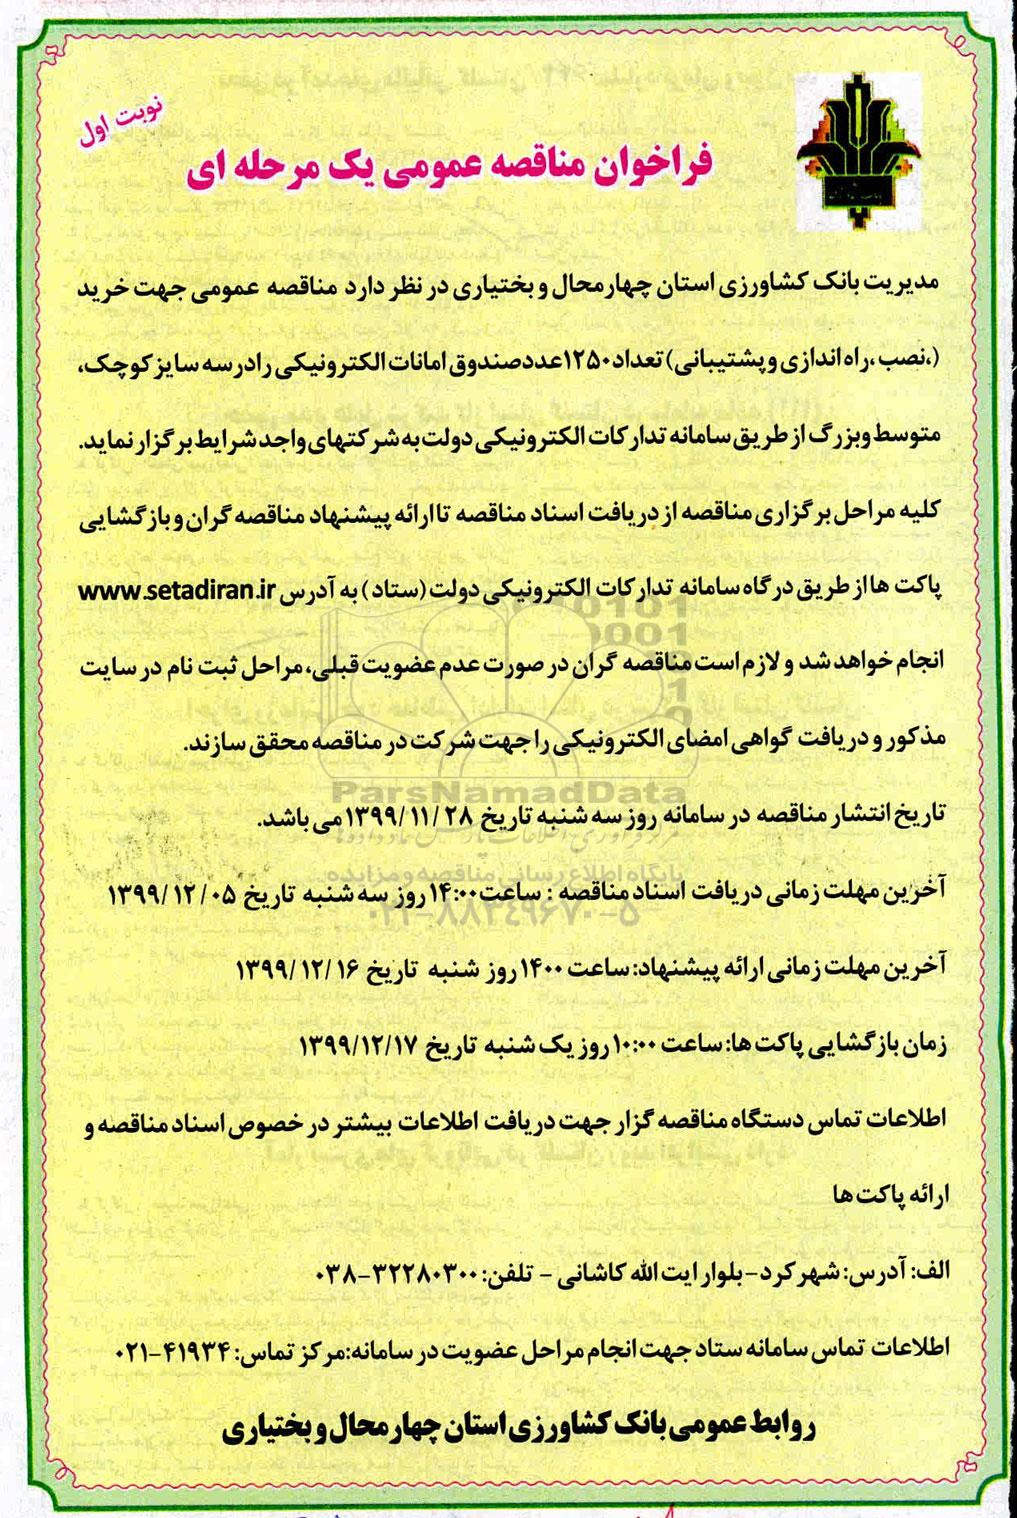 نوبت اول
فراخوان مناقصه عمومی یک مرحله ای
مدیریت بانک کشاورزی استان چهارمحال و بختیاری در نظر دارد مناقصه عمومی جهت خرید
(،نصب ،راه اندازی وپشتیبانی) تعداد۱۲۵۰عددصندوق امانات الکترونیکی رادرسه سایزکوچک،
متوسط وبزرگ از طریق سامانه تدارکات الکترونیکی دولت به شرکتهای واجد شرایط برگزار نماید.
کلیه مراحل برگزاری مناقصه از دریافت اسناد مناقصه تا ارائه پیشنهاد مناقصه گران و بازگشایی
پاکت ها از طریق درگاه سامانه تدارکات الکترونیکی دولت (ستاد ) به آدرس www.setadiran.ir
انجام خواهد شد و لازم است مناقصه گران در صورت عدم عضویت قبلی، مراحل ثبت نام در سایت
مذکور و دریافت گواهی امضای الکترونیکی را جهت شرکت در مناقصه محقق سازند.
ParsNamadData
تاریخ انتشار مناقصه در سامانه روز سه شنبه تاریخ ۲۸ /۱۳۹۹/۱۱ می باشد.
پایگاه اطلاع رسانی مناقصه و مزایده
آخرین مهلت زمانی دریافت اسناد مناقصه : ساعت ۱۴:۰۰روز سه شنبه تاریخ ۰۵ /۱۲ /۱۳۹۹
۰۲۱-۸۸۳۴۹۶۷۰-۵
آخرین مهلت زمانی ارائه پیشنهاد: ساعت ۱۴۰۰روز شنبه تاریخ ۱۶ /۱۲ /۱۳۹۹
زمان بازگشایی پاکت ها: ساعت ۱۰:۰۰روز یک شنبه تاریخ ۱۳۹۹/۱۲/۱۷
اطلاعات تماس دستگاه مناقصه گزار جهت دریافت اطلاعات بیشتر در خصوص اسناد مناقصه و
ارائه پاکت ها
الف: آدرس: شهرکرد- بلوار ایت الله کاشانی - تلفن: ۳۲۲۸۰۳۰۰-۰۳۸
اطلاعات تماس سامانه ستاد جهت انجام مراحل عضویت در سامانه:مرکز تماس: ۴۱۹۳۴-۰۲۱
روابط عمومی بانک کشاورزی استان چهارمحال و بختیاری